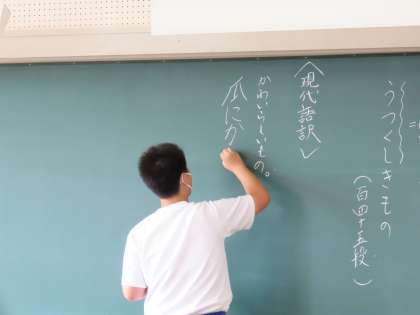 うつくしきもの
(百四十五段)
〈現代語訳〉
かわいらしいもの。
瓜にか